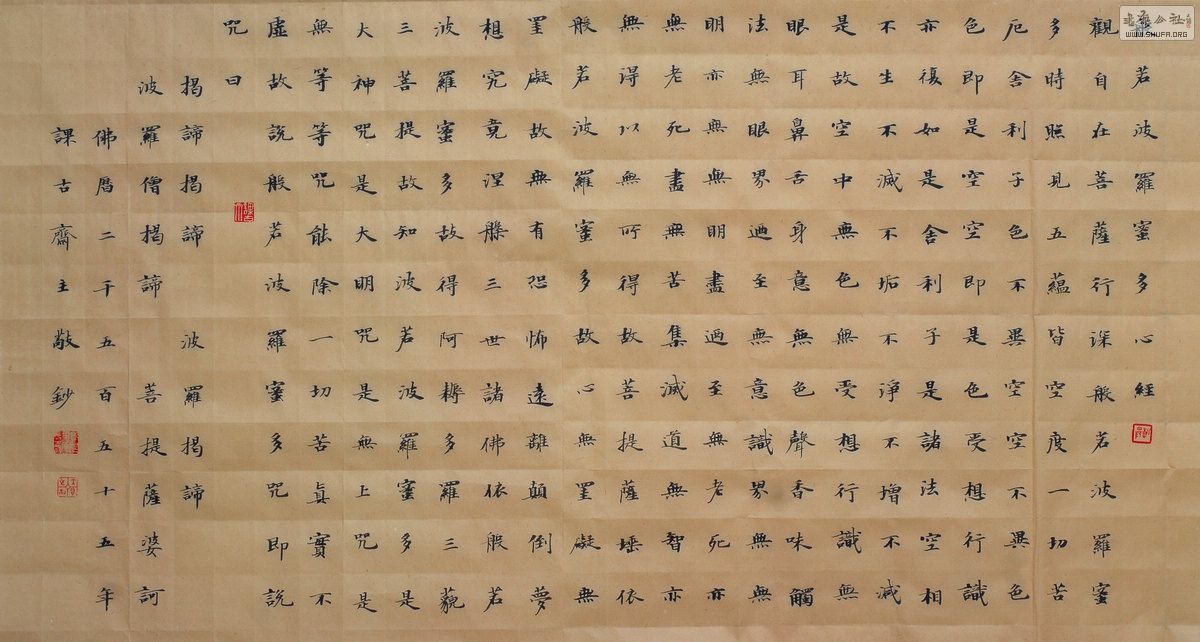 若波羅蜜多心經
觀自在菩薩行深般若波羅蜜
多時照見五蘊皆空度一切苦
厄舍利子色不異空空不異色
色即是空空即是色受想行識
亦復如是舍利子是諸法空相
不生不滅不垢不淨不增不減
是故空中無色無受想行識無
眼耳鼻舌身意無色聲香味觸
法無眼界迺至無意識界無無
明亦無無明盡迺至無老死亦
無老死盡無苦集滅道無智亦
無得以無所得故菩提薩埵依
般若波羅蜜多故心無罣礙無
罣礙故無有恐怖遠離顛倒夢
想究竟涅槃三世諸佛依般若
波羅蜜多故得阿耨多羅三藐
三菩提故知波若波羅蜜多是
大神咒是大明咒是無上咒是
無等等咒能除一切苦真實不
虛故說般若波羅蜜多咒即說
咒曰
揭諦揭諦 波羅揭諦
波羅僧揭諦 菩提薩婆訶
佛曆二千五百五十五年
課古齋主敬鈔
WWW.SHUFA.ORG